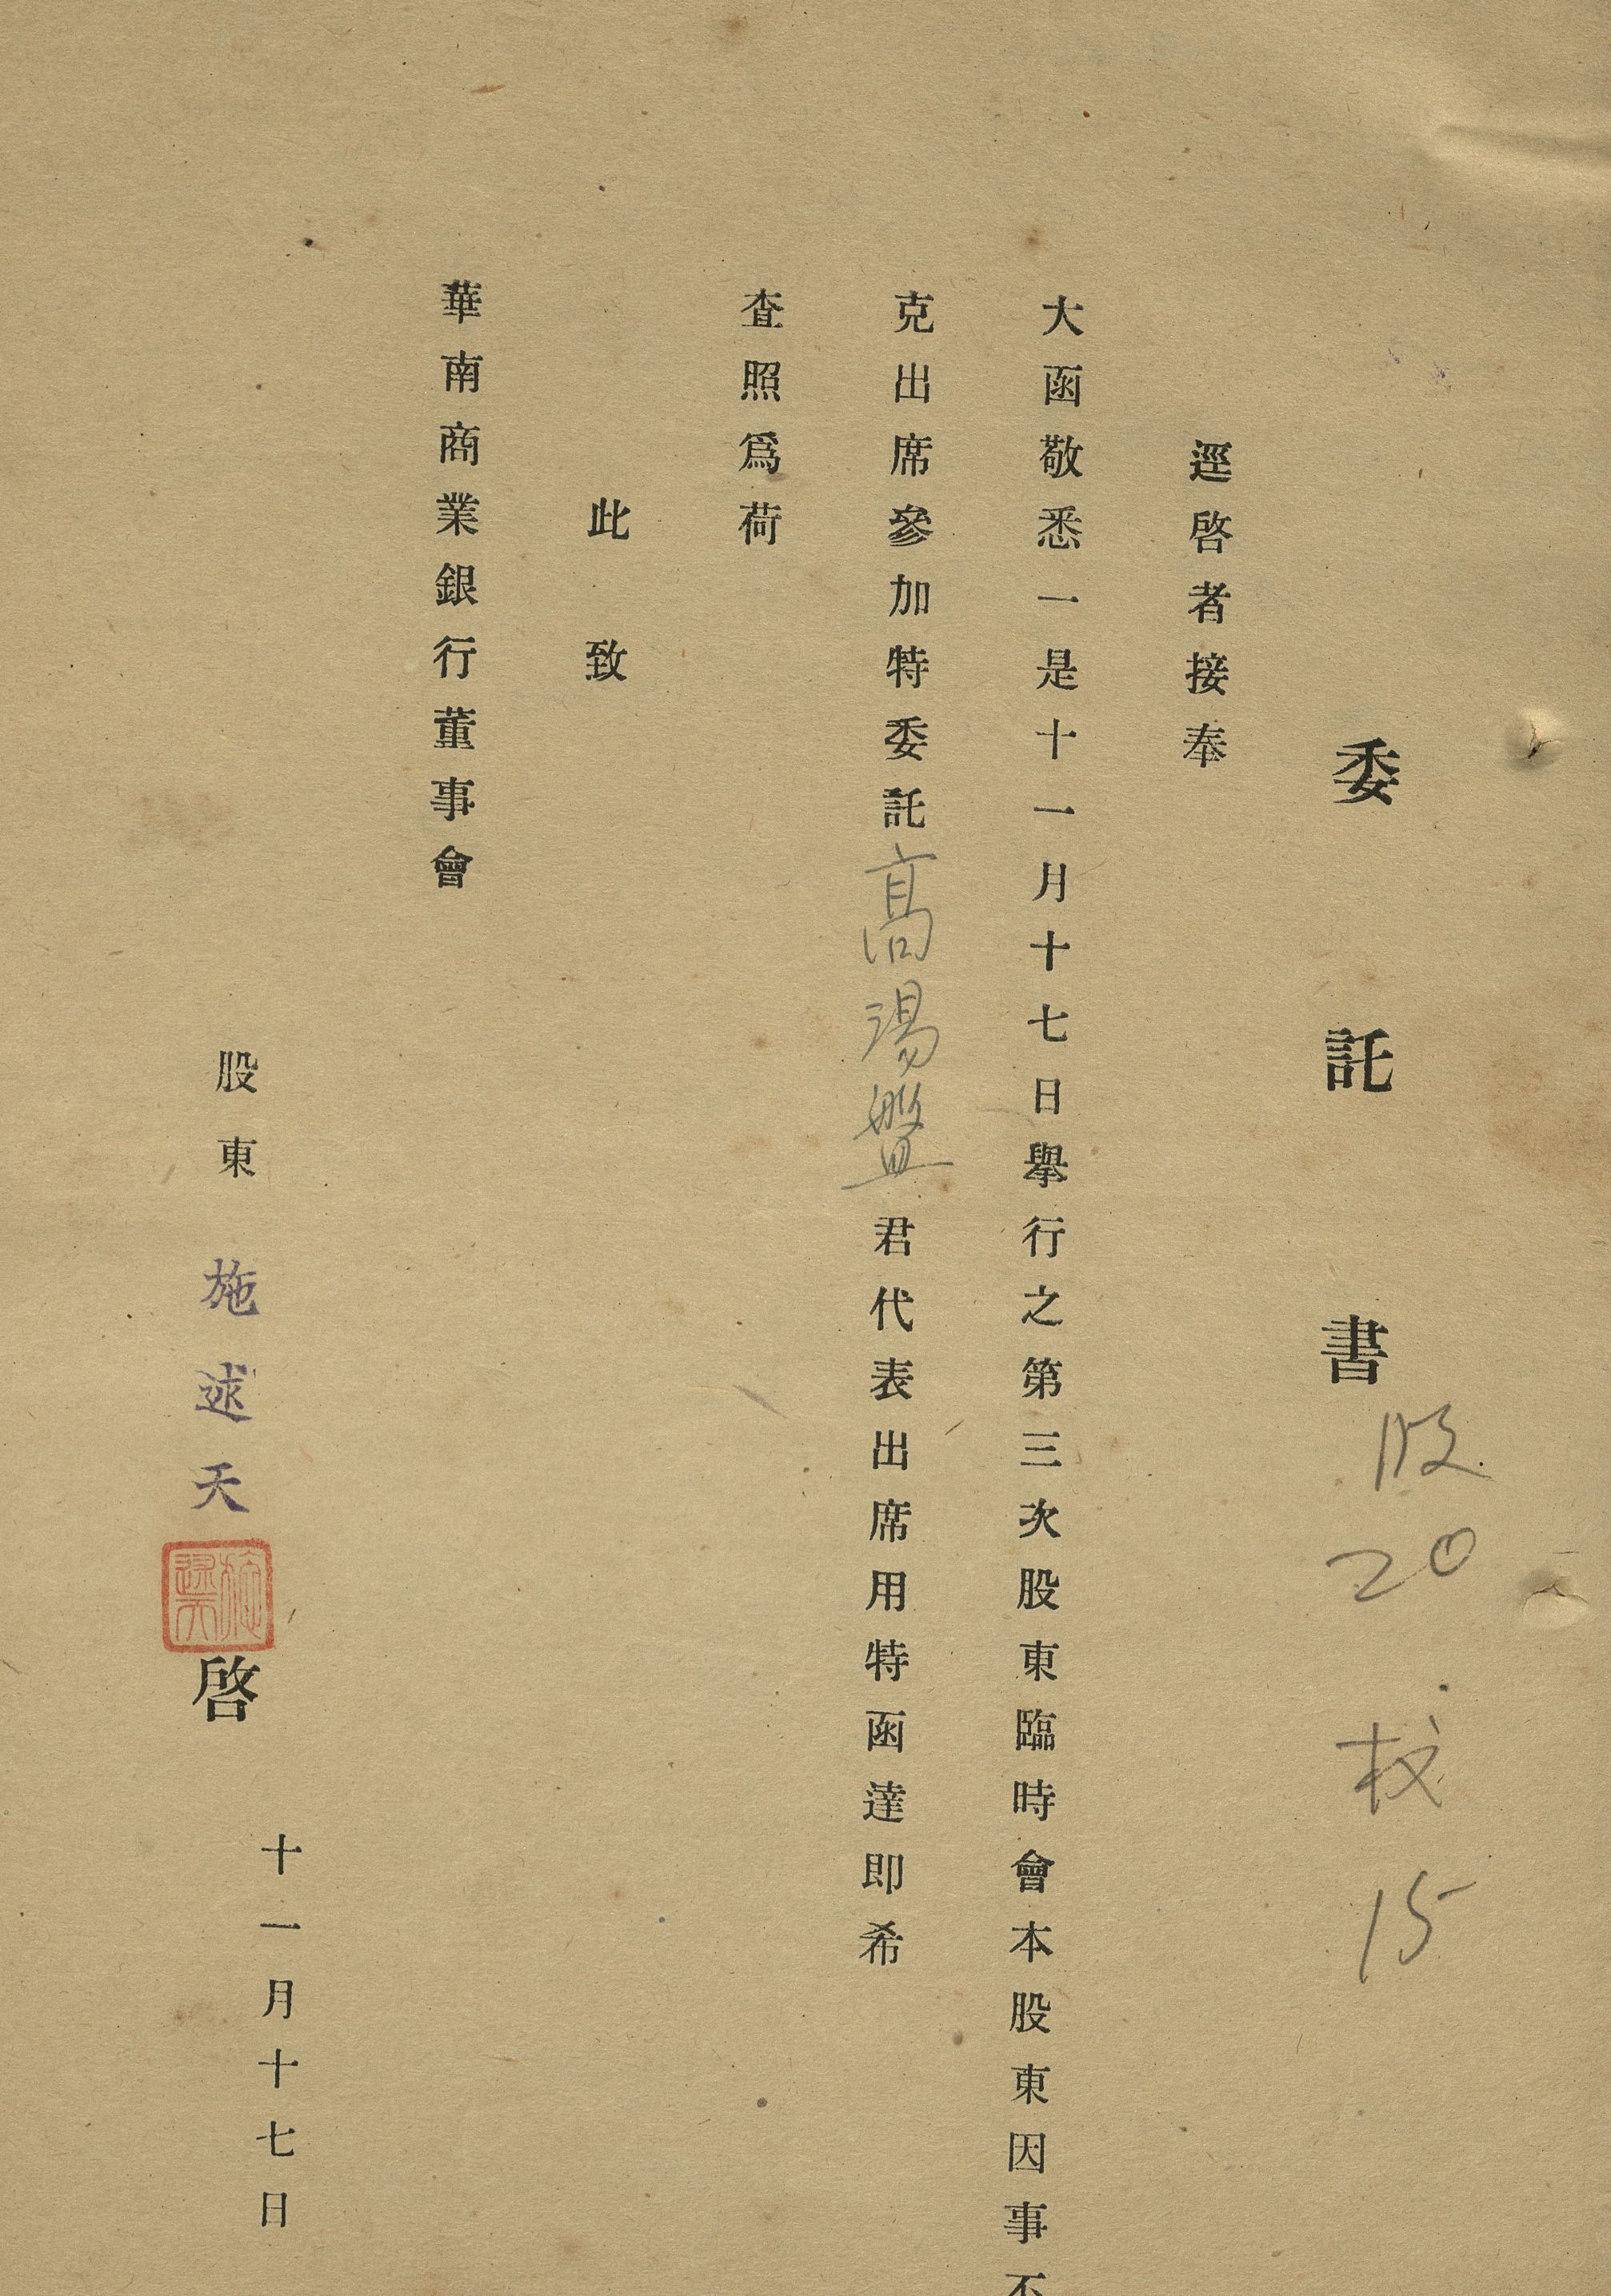 委託書
股 20 校 15
逕啓者接奉
大函敬悉一是十一月十七日舉行之第三次股東臨時會本股東因事不
克出席參加特委託高湯盤君代表出席用特函達即希
查照爲荷
此致
華南商業銀行董事會
股東 施述天 啓
施述天
十一月十七日